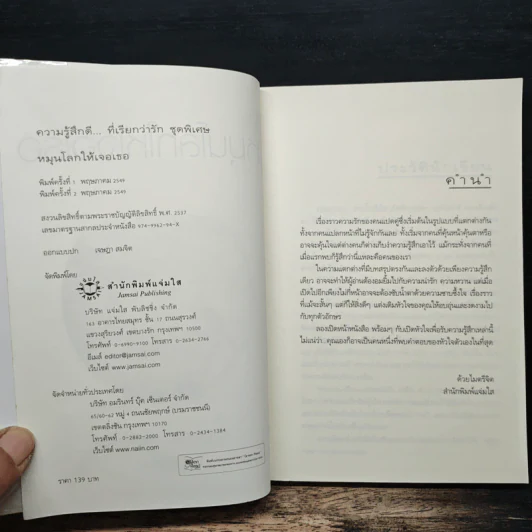 ความรู้สึกดี... ที่เรียกว่ารัก ชุดพิเศษ
หมุนโลกให้เจอเธอ
พิมพ์ครั้งที่ 1 พฤษภาคม 2549
พิมพ์ครั้งที่ 2 พฤษภาคม 2549
สงวนลิขสิทธิ์ตามพระราชบัญญัติลิขสิทธิ์ พ.ศ. 2537
เลขมาตรฐานสากลประจำหนังสือ 974-9962-99-8
ออกแบบปก เจษฎา สมจิต
จัดพิมพ์โดย
สำนักพิมพ์แจ่มใส
Jamsai Publishing
บริษัท แจ่มใส พับลิชชิ่ง จำกัด
163 อาคารไทยสมุทร ชั้น 17 ถนนสุรวงศ์
แขวงสุริยวงศ์ เขตบางรัก กรุงเทพฯ 10500
โทรศัพท์ 0-6990-9100 โทรสาร 0-2634-2766
อีเมล์ editor@jamsai.com
เว็บไซต์ www.jamsai.com
จัดจำหน่ายทั่วประเทศโดย
บริษัท อมรินทร์ บุ๊ค เซ็นเตอร์ จำกัด
65/60-62 หมู่ 4 ถนนชัยพฤกษ์ (บรมราชชนนี)
เขตตลิ่งชัน กรุงเทพฯ 10170
โทรศัพท์ 0-2882-2000 โทรสาร 0-2434-1384
เว็บไซต์ www.naiin.com
ราคา 139 บาท
คำนำ
เรื่องราวความรักของคนแปดคู่ซึ่งเริ่มต้นในรูปแบบที่แตกต่างกัน
ทั้งจากคนแปลกหน้าที่ไม่รู้จักกันเลย ทั้งเริ่มจากคนที่คุ้นหน้าคุ้นตาหรือ
อาจจะคุ้นใจแต่ต่างคนก็ต่างเก็บงำความรู้สึกเอาไว้ แม้กระทั่งจากคนที่
เมื่อแรกพบก็รู้สึกว่านี่แหละคือคนของเรา
ในความแตกต่างที่มีบทสรุปตรงกันและลงตัวด้วยเพียงความรู้สึก
เดียว อาจจะทำให้ผู้อ่านต้องอมยิ้มไปกับความน่ารัก ความหวาน แต่เมื่อ
เปิดไปอีกเพียงไม่กี่หน้าอาจจะต้องซับน้ำตาด้วยความซาบซึ้งใจ เรื่องราว
ที่แม้จะสั้นๆ แต่ก็ให้สิ่งดีๆ แต่งเติมหัวใจของคุณให้อบอุ่นและงดงามไป
กับทุกตัวอักษร
ลองเปิดหน้าหนังสือ พร้อมๆ กับเปิดหัวใจเพื่อรับความรู้สึกเหล่านี้
ไม่แน่ว่า...คุณเองก็อาจเป็นคนหนึ่งที่พบคำตอบของหัวใจตัวเองในที่สุด
ด้วยไมตรีจิต
สำนักพิมพ์แจ่มใส